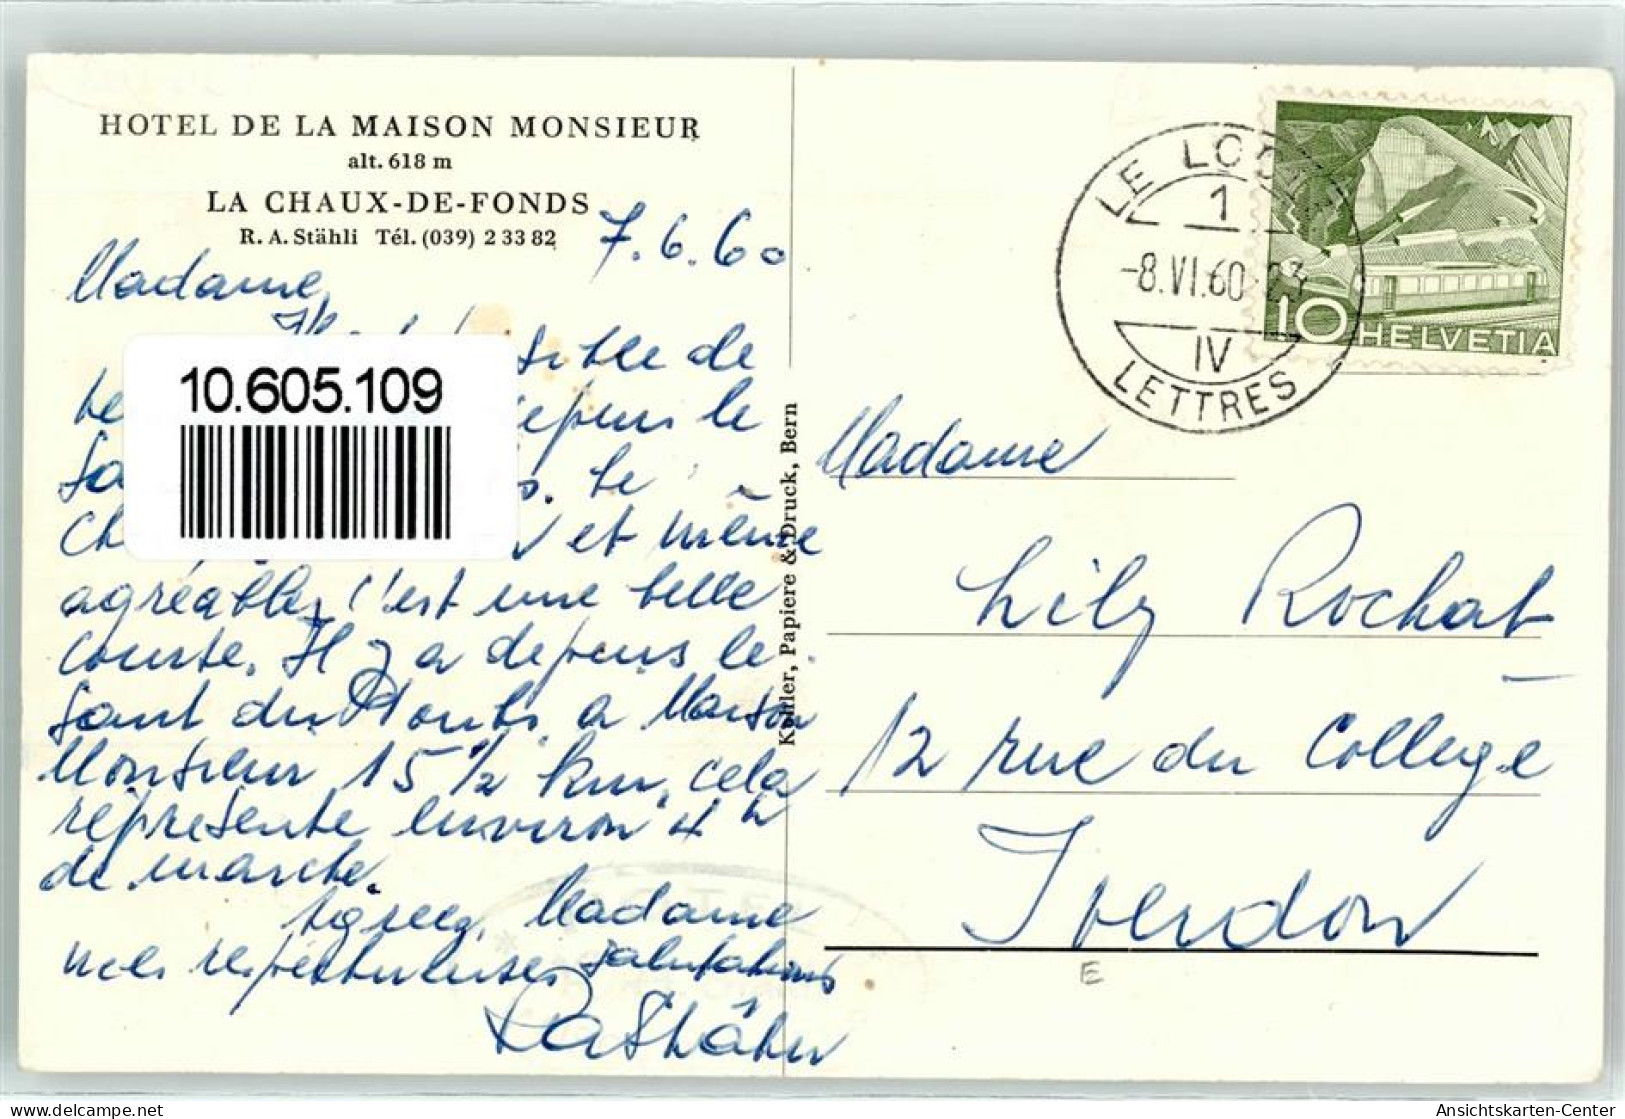 HOTEL DE LA MAISON MONSIEUR
alt. 618 m
LA CHAUX-DE-FONDS
R. A. Stähli Tél. (039) 2 33 82
7.6.60
Madame,
de
le
et même
agréable, c'est une belle
course. Il y a depuis le
saut du Doubs à Maison
Monsieur 15 ½ km, cela
représente environ 4 h
de marche.
Agréez, Madame
nos respectueuses salutations
RA Stähli
10.605.109
Kohler, Papiere & Druck, Bern
LE LOCLE
1
-8.VI.60-
IV
LETTRES
10 HELVETIA
Madame
Lily Rochat
12 rue du Collège
Yverdon
E
delcampe.net
Ansichtskarten-Center